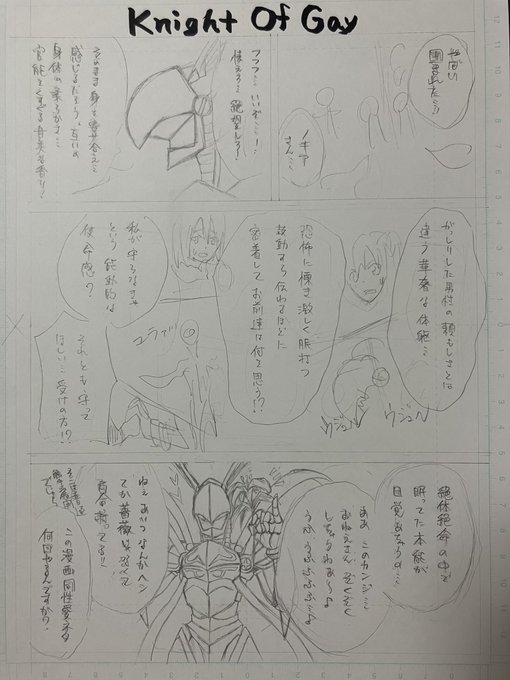 Knight Of Gay
やばい
囲まれた…!
ノキア
さん…
フフフ…いいぞ…!
怯えろ!絶望しろ!
そのまま身を寄せ合え…
感じるだろう、互いの
身体の柔らかさ…
官能をくすぐる
がっしりした男性の頼もしさとは
違う華奢な体躯…
恐怖に慄き激しく脈打つ
鼓動すら伝わるほどに
密着して お前達は何を思う!?
私が守らなきゃ
という能動的な
使命感?
それとも守って
ほしい…受けの方!?
コラァ!!
ウジュル
ウジュル
絶体絶命の中で
眠ってた本能が
目覚めちゃうの…
ああ このカンジ…
おねえさん ぞくぞく
しちゃうわぁ~
ねぇ あいつなんかヘン
てか薔薇
この漫画同性愛ネタ
何回やるんですか?